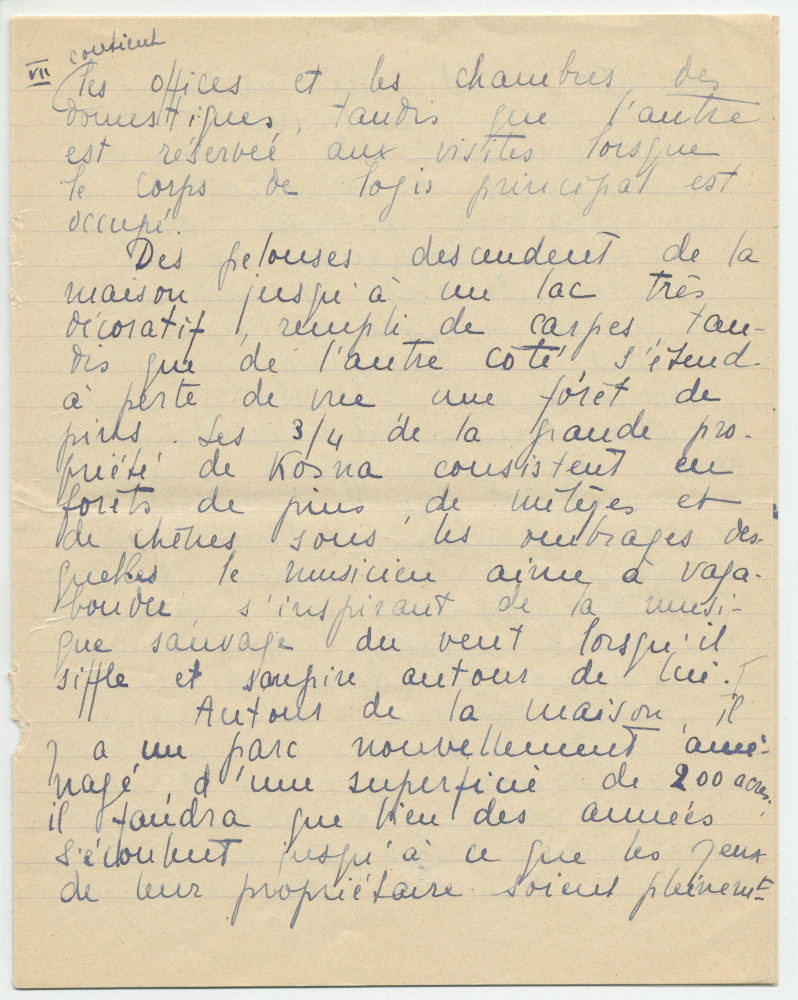 VII contient
les offices et les chambres des
domestiques, tandis que l'autre
est réserveé aux visites lorsque
le corps de logis principal est
occupé.
Des pelouses descendent de la
maison jusqu'à un lac très
décoratif, rempli de carpes, tan-
dis que de l'autre coté, s'étend
à perte de vue une forêt de
pins. Les 3/4 de la grande pro-
priété de Kosna consistent en
forêts de pins, de mélèzes et
de chênes sous les ombrages des-
quelles le musicien aime à vaga-
bonder s'inspirant de la musi-
que sauvage du vent lorsqu'il
siffle et soupire autour de lui.
Autour de la maison, il
y a un parc nouvellement amé-
nagé, d'une superficie de 200 acres.
il faudra que bien des années
s'écoulent jusqu'à ce que les yeux
de leur propriétaire soient pleinemt